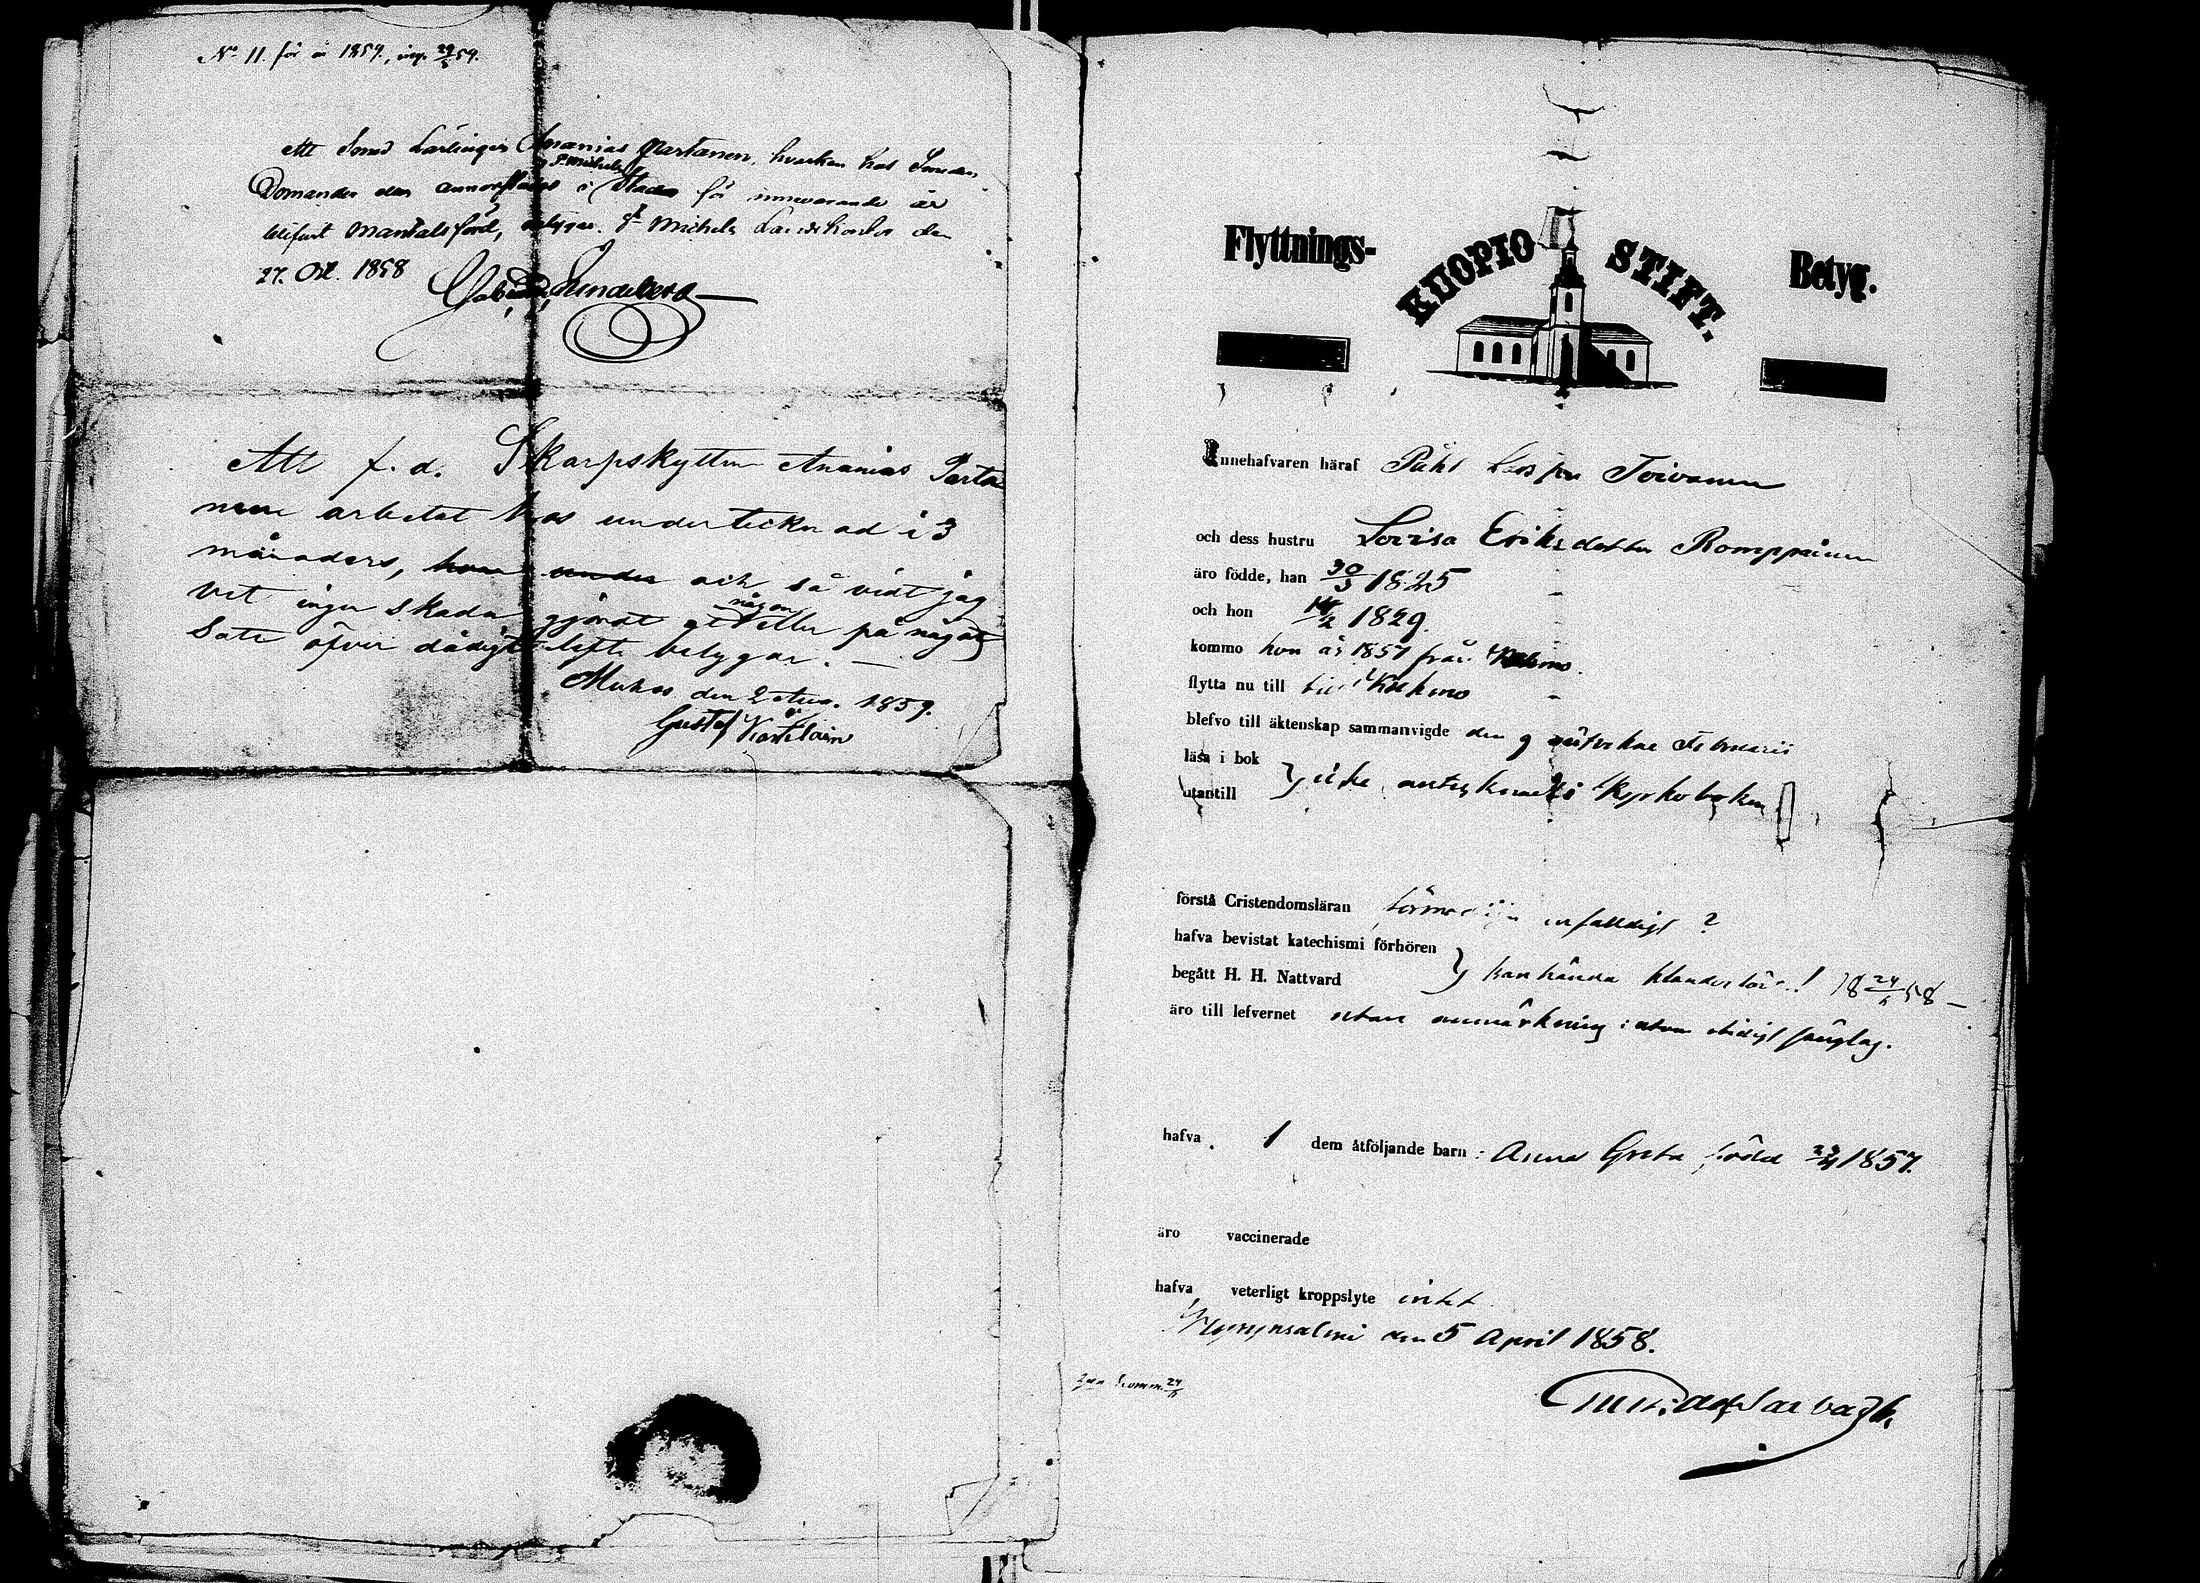 No 11. för år 1859., ing. 29/5 59.
Att Smed Lärlingen Ananias Partanen, hvarken hos Smeden
St Michels
Domander eller annorstädes i Stad för innevarande år
blifvit Mantalsförd, betygar. St Michels Landskontor den
27. Oct. 1858
Att f. d. Skarpskytten Ananias Parta
nen arbetat hos undertecknad i 3
månaders, och så vidt jag
vet ingen skada gjordt åt någon eller på något
Sätt öfver dådigt left betygar. —
Muhos den 2 Aug. 1859.
Gustaf
Flyttnings- KUOPIO STIFT. Betyg.
Innehafvaren häraf Påhl Larsson Toivanen
och dess hustru Lovisa Eriksdotter Romppainen
äro födde, han 30/3 1825
och hon 14/2 1829.
kommo hon år 1857 från Kuhmo.
flytta nu till Kuhmo
blefvo till äktenskap sammanvigde den 9 Februarii
läsa i bok
utantill } icke antecknadt i Kyrkoboken
förstå Cristendomsläran enfaldigt ?
hafva bevistat katechismi förhören
begått H. H. Nattvard } kanhända 18 24/1 58 —
äro till lefvernet utan anmärkning:
hafva 1 dem åtföljande barn: Anna Greta, född 1857.
äro vaccinerade
hafva veterligt kroppslyte intet
Hyrynsalmi den 5 April 1858.